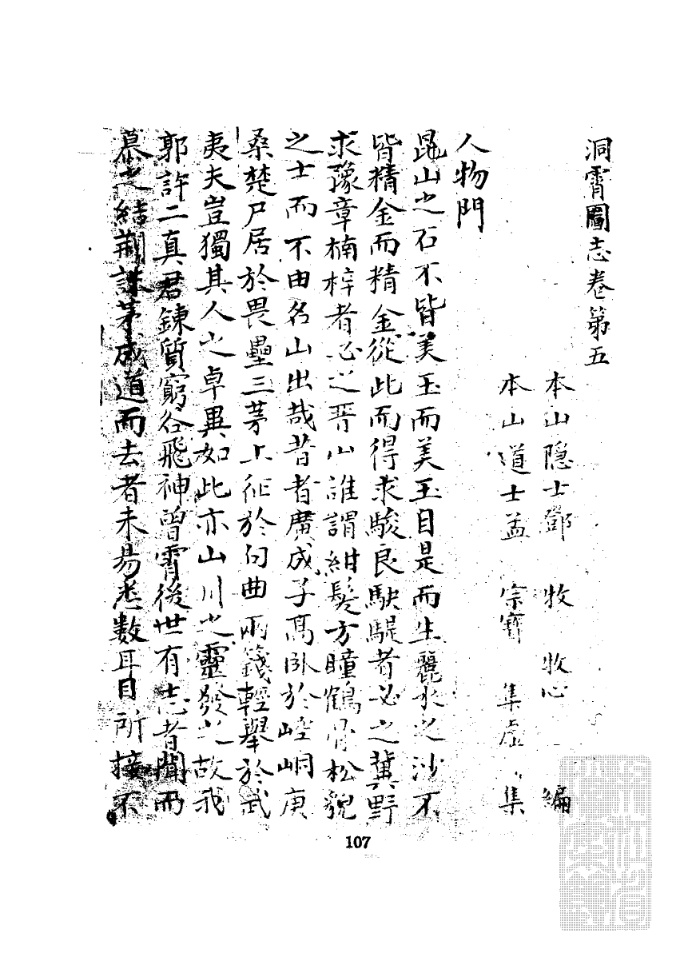 洞霄圖志卷第五
本山隱士鄧 牧 牧心 編
本山道士孟 宗寶 集虛 集
人物門
崑山之石不皆美玉而美玉自是而生麗水之沙不
皆精金而精金從此而得求駿良駃騠者必之冀野
求豫章楠梓者必之晋山誰謂紺髮方瞳鶴骨松貌
之士而不由名山出哉昔者廣成子髙卧於崆峒庚
桑楚尸居於畏壘三茅上征於句曲兩籛輕舉於武
夷夫豈獨其人之卓異如此亦山川之靈發之故我
郭許二真君鍊質窮谷飛神曾霄後世有志者聞而
慕之結荆誅茅成道而去者未易悉數耳目所接不
107